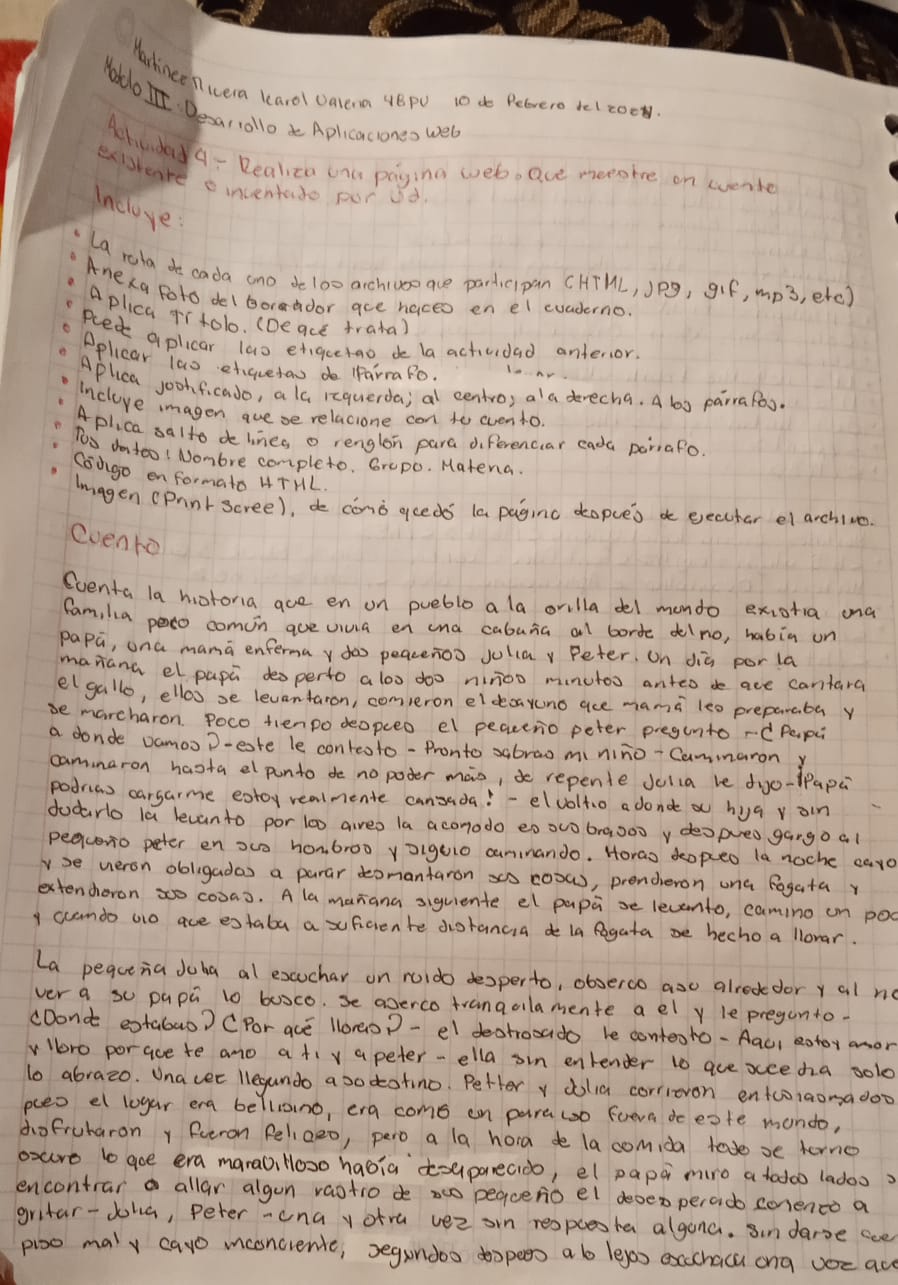 Martinez Rivera Karol Valeria 4BPV 10 de Febrero del 2024.
Modulo III. Desarrollo de Aplicaciones Web
Actividad 9- Realiza una página web. Que muestre un cuento
existente o inventado por Ud.
Incluye:
• La ruta de cada uno de los archivos que participan CHTML, JPg, gif, mp3, etc)
• Anexa Foto del borrador que haces en el cuaderno.
• Aplica Titolo. (De que trata)
• Puede aplicar las etiquetas de la actividad anterior.
• Aplicar las etiquetas de Párrafo.
• Aplica justificado, a la izquerda; al centro; a la derecha. A los párrafos.
• Incluye imagen que se relacione con tu cuento.
• Aplica salto de linea o renglón para diferenciar cada párrafo.
• Tus datos: Nombre completo. Grupo. Materia.
• Código en formato HTML.
Imagen (Print Scree), de comó quedó la página después de ejecutar el archivo.
Cuento
Cuenta la historia que en un pueblo a la orilla del mundo existia una
familia poco común que vivia en una cabaña al borde del rio, habia un
papá, una mamá enferma y dos pequeños Julia y Peter. Un dia por la
mañana el papá desperto a los dos niños minutos antes de que cantara
el gallo, ellos se levantaron, comieron el desayuno que mamá les preparaba y
se marcharon. Poco tiempo despues el pequeño peter pregunto -¿Papá
a donde vamos?-este le contesto - Pronto sabras mi niño - Caminaron y
caminaron hasta el punto de no poder más, de repente Julia le dijo-¡Papá
podrias cargarme estoy realmente cansada! - el voltio a donde su hija y sin
dudarlo la levanto por los aires la acomodo es sus brasos y despues gargo al
pequeño peter en sus hombros y siguio caminando. Horas despues la noche cayo
y se vieron obligados a parar desmantaron sus cosas, prendieron una fogata y
extendieron sus cosas. A la mañana siguiente el papá se levanto, camino un poc
y cuando vio que estaba a suficiente distancia de la fogata se hecho a llorar.
La pequeña Julia al escuchar un ruido desperto, observo a su alrededor y al no
ver a su papá lo busco. Se aserco tranquilamente a el y le pregunto -
¿Donde estabas? ¿Por qué lloras? - el destrosado le contesto - Aqui estoy amor
y lloro porque te amo a ti y a peter - ella sin entender lo que sucedia solo
lo abrazo. Una vez llegando a su destino. Petter y Julia corrieron entusiasmados
pues el lugar era bellisimo, era como un paraiso fuera de este mundo,
disfrutaron y fueron felices, pero a la hora de la comida todo se torno
oscuro lo que era maravilloso habia desaparecido, el papá miro a todos lados s
encontrar allar algun rastro de sus pequeño el desesperado comenzo a
gritar - Julia, Peter - una y otra vez sin respuesta alguna. Sin darse cue
piso mal y cayo inconciente, segundos despues a lo lejos escuchaca una voz que